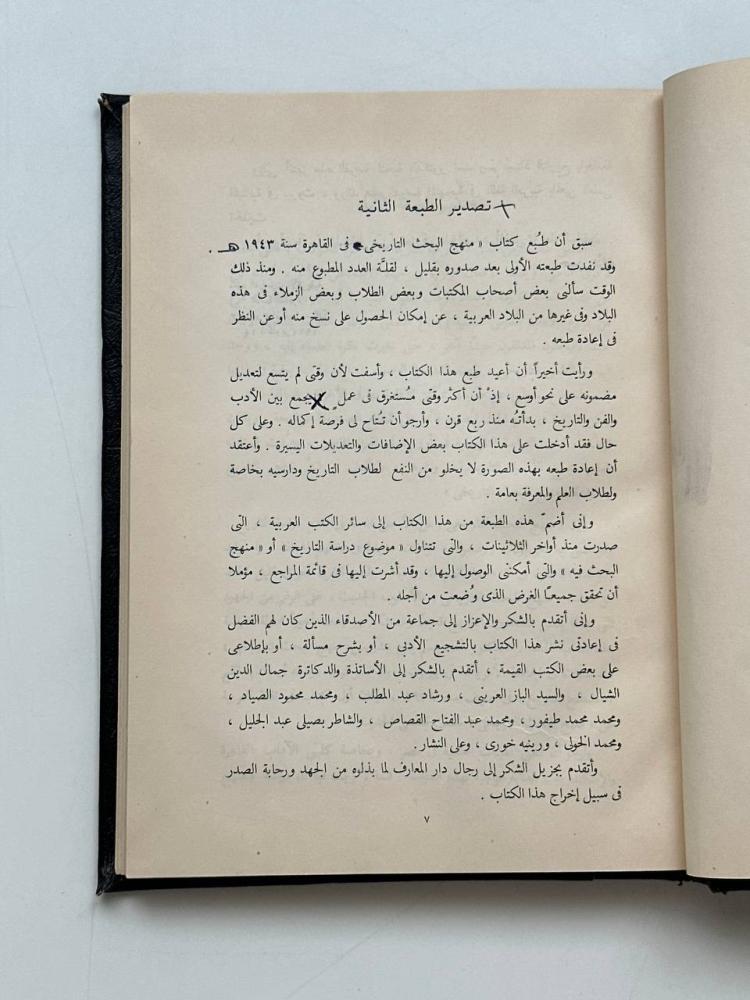 تصدير الطبعة الثانية
سبق أن طُبع كتاب « منهج البحث التاريخى » فى القاهرة سنة ١٩٤٣ هـ .
وقد نفدت طبعته الأولى بعد صدوره بقليل ، لقلَّة العدد المطبوع منه . ومنذ ذلك
الوقت سألنى بعض أصحاب المكتبات وبعض الطلاب وبعض الزملاء فى هذه
البلاد وفى غيرها من البلاد العربية ، عن إمكان الحصول على نسخ منه أو عن النظر
فى إعادة طبعه .
ورأيت أخيراً أن أعيد طبع هذا الكتاب ، وأسفت لأن وقتى لم يتسع لتعديل
مضمونه على نحو أوسع ، إذْ أن أكثر وقتى مُستغرق فى عملٍ يجمع بين الأدب
والفن والتاريخ ، بدأتُه منذ ربع قرن ، وأرجو أن تُتاح لى فرصة إكماله . وعلى كل
حال فقد أدخلت على هذا الكتاب بعض الإضافات والتعديلات اليسيرة . وأعتقد
أن إعادة طبعه بهذه الصورة لا يخلو من النفع لطلاب التاريخ ودارسيه بخاصة
ولطلاب العلم والمعرفة بعامة .
وإنى أضمّ هذه الطبعة من هذا الكتاب إلى سائر الكتب العربية ، التى
صدرت منذ أواخر الثلاثينات ، والتى تتناول « موضوع دراسة التاريخ » أو « منهج
البحث فيه » والتى أمكننى الوصول إليها ، وقد أشرت إليها فى قائمة المراجع ، مؤملا
أن تحقق جميعًا الغرض الذى وُضعت من أجله .
وإنى أتقدم بالشكر والإعزاز إلى جماعة من الأصدقاء الذين كان لهم الفضل
فى إعادتى نشر هذا الكتاب بالتشجيع الأدبى ، أو بشرح مسألة ، أو بإطلاعى
على بعض الكتب القيمة ، أتقدم بالشكر إلى الأساتذة والدكاترة جمال الدين
الشيال ، والسيد الباز العرينى ، ورشاد عبد المطلب ، ومحمد محمود الصياد ،
ومحمد محمد طيفور ، ومحمد عبد الفتاح القصاص ، والشاطر بصيلى عبد الجليل ،
ومحمد الخولى ، ورينيه خورى ، وعلى النشار .
وأتقدم بجزيل الشكر إلى رجال دار المعارف لما بذلوه من الجهد ورحابة الصدر
فى سبيل إخراج هذا الكتاب .
٧